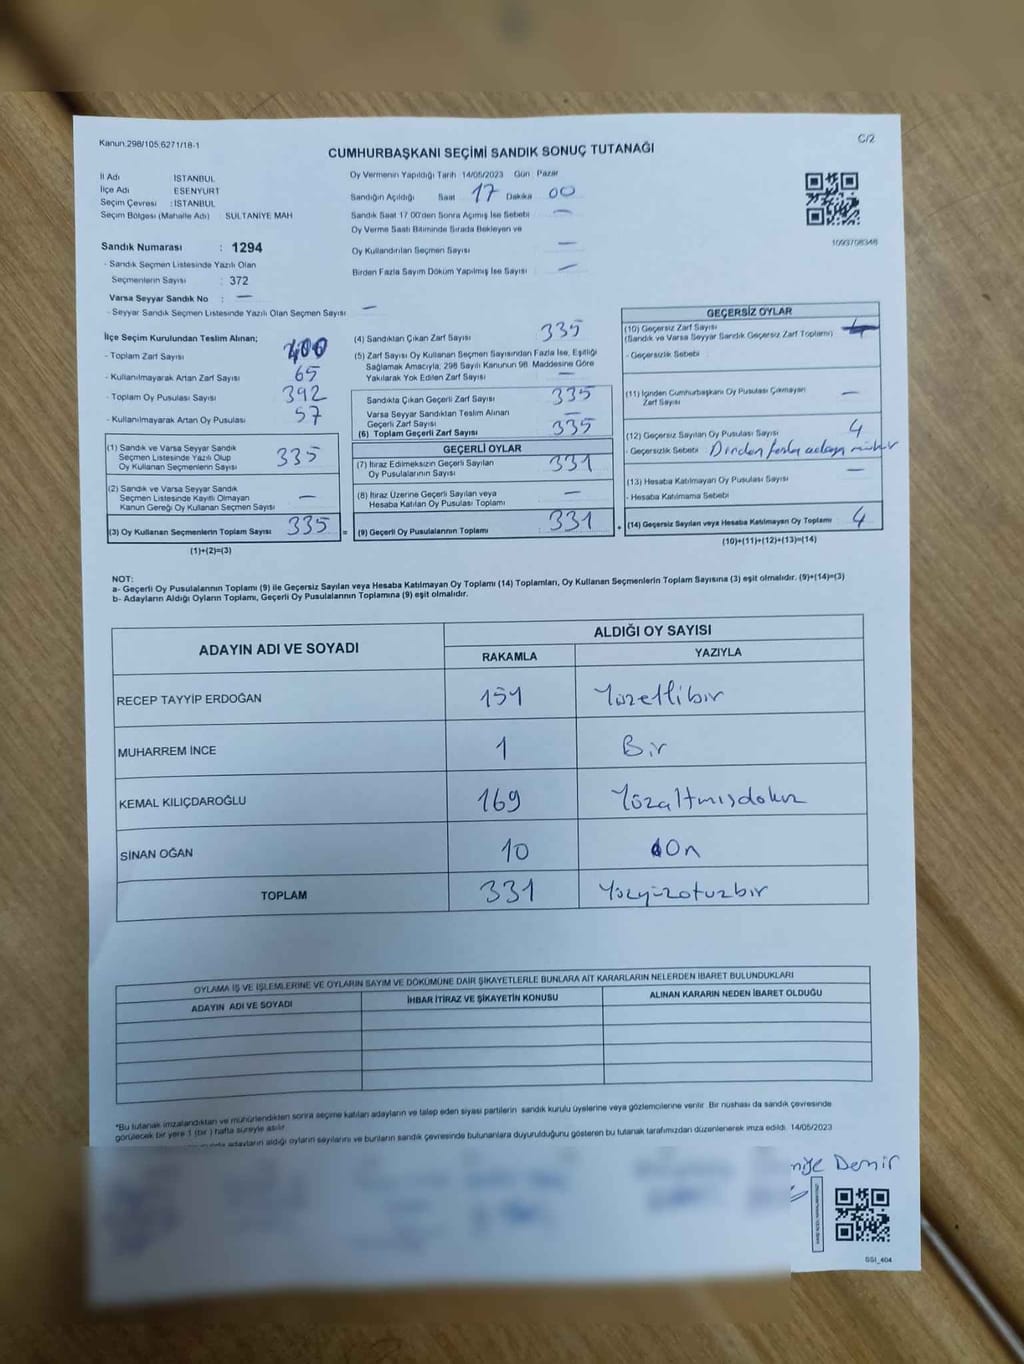 Kanun.298/105.6271/18-1
C/2
CUMHURBAŞKANI SEÇİMİ SANDIK SONUÇ TUTANAĞI
İl Adı İSTANBUL
İlçe Adı ESENYURT
Seçim Çevresi : İSTANBUL
Seçim Bölgesi (Mahalle Adı) SULTANİYE MAH
Sandık Numarası : 1294
- Sandık Seçmen Listesinde Yazılı Olan
Seçmenlerin Sayısı : 372
Varsa Seyyar Sandık No : —
- Seyyar Sandık Seçmen Listesinde Yazılı Olan Seçmen Sayısı —
Oy Vermenin Yapıldığı Tarih 14/05/2023 Gün Pazar
Sandığın Açıldığı Saat 17 Dakika 00
Sandık Saat 17 00'den Sonra Açılmış İse Sebebi —
Oy Verme Saati Bitiminde Sırada Bekleyen ve
Oy Kullandırılan Seçmen Sayısı —
Birden Fazla Sayım Döküm Yapılmış İse Sayısı —
1093708348
İlçe Seçim Kurulundan Teslim Alınan;
- Toplam Zarf Sayısı 400
- Kullanılmayarak Artan Zarf Sayısı 65
- Toplam Oy Pusulası Sayısı 392
- Kullanılmayarak Artan Oy Pusulası 57
(1) Sandık ve Varsa Seyyar Sandık
Seçmen Listesinde Yazılı Olup
Oy Kullanan Seçmenlerin Sayısı 335
(2) Sandık ve Varsa Seyyar Sandık
Seçmen Listesinde Kayıtlı Olmayan
Kanun Gereği Oy Kullanan Seçmen Sayısı —
(3) Oy Kullanan Seçmenlerin Toplam Sayısı 335 =
(1)+(2)=(3)
(4) Sandıktan Çıkan Zarf Sayısı 335
(5) Zarf Sayısı Oy Kullanan Seçmen Sayısından Fazla İse, Eşitliği
Sağlamak Amacıyla, 298 Sayılı Kanunun 98. Maddesine Göre
Yakılarak Yok Edilen Zarf Sayısı —
Sandıkta Çıkan Geçerli Zarf Sayısı 335
Varsa Seyyar Sandıktan Teslim Alınan
Geçerli Zarf Sayısı —
(6) Toplam Geçerli Zarf Sayısı 335
GEÇERLİ OYLAR
(7) İtiraz Edilmeksizin Geçerli Sayılan
Oy Pusulalarının Sayısı 331
(8) İtiraz Üzerine Geçerli Sayılan veya
Hesaba Katılan Oy Pusulası Toplamı —
(9) Geçerli Oy Pusulalarının Toplamı 331 +
GEÇERSİZ OYLAR
(10) Geçersiz Zarf Sayısı
(Sandık ve Varsa Seyyar Sandık Geçersiz Zarf Toplamı)
- Geçersizlik Sebebi
(11) İçinden Cumhurbaşkanı Oy Pusulası Çıkmayan
Zarf Sayısı —
(12) Geçersiz Sayılan Oy Pusulası Sayısı 4
- Geçersizlik Sebebi Birden fazla adaya mühür
(13) Hesaba Katılmayan Oy Pusulası Sayısı —
- Hesaba Katılmama Sebebi
(14) Geçersiz Sayılan veya Hesaba Katılmayan Oy Toplamı 4
(10)+(11)+(12)+(13)=(14)
NOT:
a- Geçerli Oy Pusulalarının Toplamı (9) ile Geçersiz Sayılan veya Hesaba Katılmayan Oy Toplamı (14) Toplamları, Oy Kullanan Seçmenlerin Toplam Sayısına (3) eşit olmalıdır. (9)+(14)=(3)
b- Adayların Aldığı Oyların Toplamı, Geçerli Oy Pusulalarının Toplamına (9) eşit olmalıdır.
ADAYIN ADI VE SOYADI ALDIĞI OY SAYISI
RAKAMLA YAZIYLA
RECEP TAYYİP ERDOĞAN 151 Yüzellibir
MUHARREM İNCE 1 Bir
KEMAL KILIÇDAROĞLU 169 Yüzaltmışdokuz
SİNAN OĞAN 10 On
TOPLAM 331 Yüzyüzotuzbir
OYLAMA İŞ VE İŞLEMLERİNE VE OYLARIN SAYIM VE DÖKÜMÜNE DAİR ŞİKAYETLERLE BUNLARA AİT KARARLARIN NELERDEN İBARET BULUNDUKLARI
ADAYIN ADI VE SOYADI İHBAR İTİRAZ VE ŞİKAYETİN KONUSU ALINAN KARARIN NEDEN İBARET OLDUĞU
*Bu tutanak imzalandıktan ve mühürlendikten sonra seçime katılan adayların ve talep eden siyasi partilerin sandık kurulu üyelerine veya gözlemcilerine verilir. Bir nüshası da sandık çevresinde
görülecek bir yere 1 (bir ) hafta süreyle asılır.
adayların aldığı oyların sayılarını ve bunların sandık çevresinde bulunanlara duyurulduğunu gösteren bu tutanak tarafımızdan düzenlenerek imza edildi. 14/05/2023
Demir
SSI_404